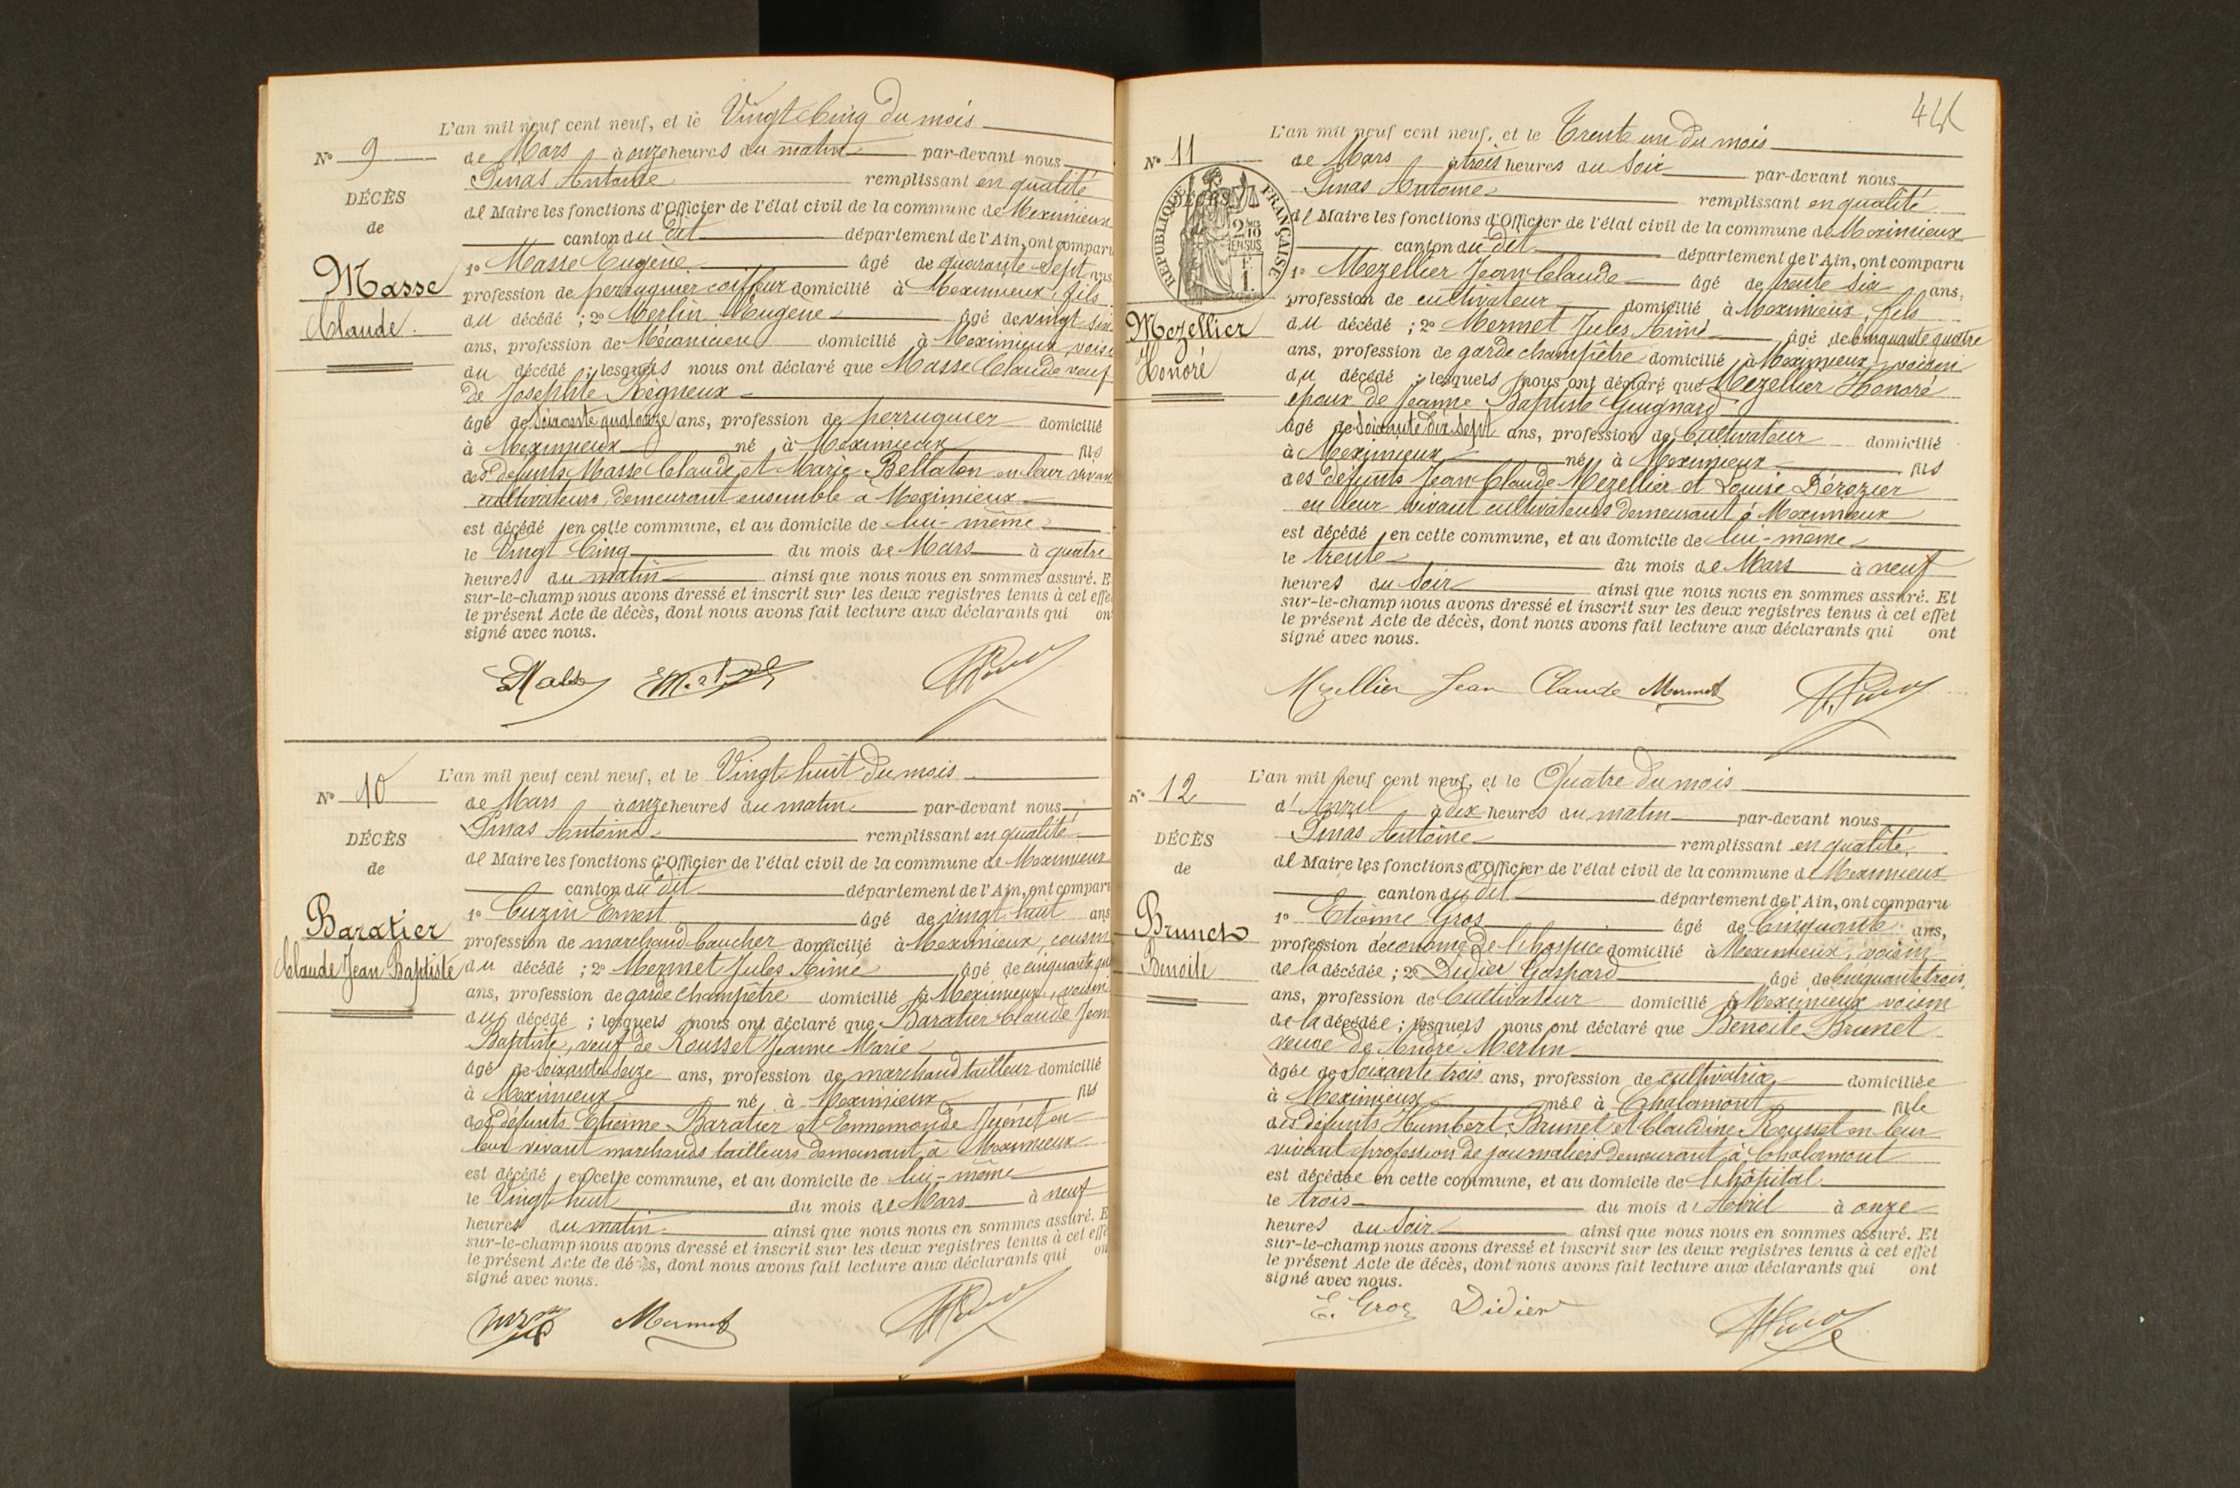 N° 9
DÉCÈS
de
Masse
Claude
L'an mil neuf cent neuf, et le Vingt Cinq du mois
de Mars à onze heures du matin par-devant nous
Pinas Antoine remplissant en qualité
de Maire les fonctions d'Officier de l'état civil de la commune de Meximieux
canton du dit département de l'Ain, ont comparu
1° Masse Eugène âgé de quarante sept ans
profession de perruquier coiffeur domicilié à Meximieux, fils
du décédé ; 2° Merlin Eugène âgé de vingt six
ans, profession de Mécanicien domicilié à Meximieux voisin
du décédé ; lesquels nous ont déclaré que Masse Claude veuf
de Josephte Régneux
âgé de Soixante quatorze ans, profession de perruquier domicilié
à Meximieux né à Meximieux fils
des défunts Masse Claude et Marie Bellaton en leur vivant
cultivateurs demeurant ensemble à Meximieux
est décédé en cette commune, et au domicile de lui-même
le Vingt Cinq du mois de Mars à quatre
heures du matin ainsi que nous nous en sommes assuré. E
sur-le-champ nous avons dressé et inscrit sur les deux registres tenus à cet effe
le présent Acte de décès, dont nous avons fait lecture aux déclarants qui on
signé avec nous.
N° 10
DÉCÈS
de
Baratier
Claude Jean Baptiste
L'an mil neuf cent neuf, et le Vingt huit du mois
de Mars à onze heures du matin par-devant nous
Pinas Antoine remplissant en qualité
de Maire les fonctions d'Officier de l'état civil de la commune de Meximieux
canton du dit département de l'Ain, ont comparu
1° Cuzin Ernest âgé de vingt huit ans
profession de marchand boucher domicilié à Meximieux, cousin
du décédé ; 2° Mermet Jules Aimé âgé de cinquante
ans, profession de garde champêtre domicilié à Meximieux, voisin
du décédé ; lesquels nous ont déclaré que Baratier Claude Jean
Baptiste, veuf de Rousset Jeanne Marie
âgé de Soixante Seize ans, profession de marchand tailleur domicilié
à Meximieux né à Meximieux fils
des défunts Etienne Baratier et Ennemonde en
leur vivant marchands tailleurs demeurant à Meximieux
est décédé en cette commune, et au domicile de lui-même
le Vingt huit du mois de Mars à neuf
heures du matin ainsi que nous nous en sommes assuré. E
sur-le-champ nous avons dressé et inscrit sur les deux registres tenus à cet effe
le présent Acte de décès, dont nous avons fait lecture aux déclarants qui on
signé avec nous.
Mermet
N° 11
DÉCÈS
RÉPUBLIQUE FRANÇAISE
2/10 EN SUS
Mezellier
Honoré
L'an mil neuf cent neuf, et le Trente un du mois
de Mars à trois heures du Soir par-devant nous
Pinas Antoine remplissant en qualité
de Maire les fonctions d'Officier de l'état civil de la commune de Meximieux
canton du dit département de l'Ain, ont comparu
1° Mezellier Jean Claude âgé de trente six ans,
profession de cultivateur domicilié à Meximieux, fils
du décédé ; 2° Mermet Jules Aimé âgé de Cinquante quatre
ans, profession de garde champêtre domicilié à Meximieux, voisin
du décédé ; lesquels nous ont déclaré que Mezellier Honoré
époux de Jeanne Baptiste Guignard
âgé de Soixante dix sept ans, profession de Cultivateur domicilié
à Meximieux né à Meximieux fils
des défunts Jean Claude Mezellier et Louise Dérozier
en leur vivant cultivateurs demeurant à Meximieux
est décédé en cette commune, et au domicile de lui-même
le trente du mois de Mars à neuf
heures du Soir ainsi que nous nous en sommes assuré. Et
sur-le-champ nous avons dressé et inscrit sur les deux registres tenus à cet effet
le présent Acte de décès, dont nous avons fait lecture aux déclarants qui ont
signé avec nous.
Mezellier Jean Claude Mermet
N° 12
DÉCÈS
de
Brunet
Benoite
L'an mil neuf cent neuf, et le Quatre du mois
d'Avril à dix heures du matin par-devant nous
Pinas Antoine remplissant en qualité
de Maire les fonctions d'Officier de l'état civil de la commune de Meximieux
canton du dit département de l'Ain, ont comparu
1° Etienne Gros âgé de Cinquante ans,
profession d'économe de l'hospice domicilié à Meximieux, voisin
de la décédée ; 2° Didier Gaspard âgé de Cinquante trois
ans, profession de Cultivateur domicilié à Meximieux voisin
de la décédée ; lesquels nous ont déclaré que Benoite Brunet
veuve de André Merlin
âgée de Soixante trois ans, profession de cultivatrice domiciliée
à Meximieux née à Chalamont fille
des défunts Humbert Brunet et Claudine Rousset en leur
vivant profession de journaliers demeurant à Chalamont
est décédée en cette commune, et au domicile de l'hôpital
le trois du mois d'Avril à onze
heures du Soir ainsi que nous nous en sommes assuré. Et
sur-le-champ nous avons dressé et inscrit sur les deux registres tenus à cet effet
le présent Acte de décès, dont nous avons fait lecture aux déclarants qui ont
signé avec nous.
E. Gros Didier